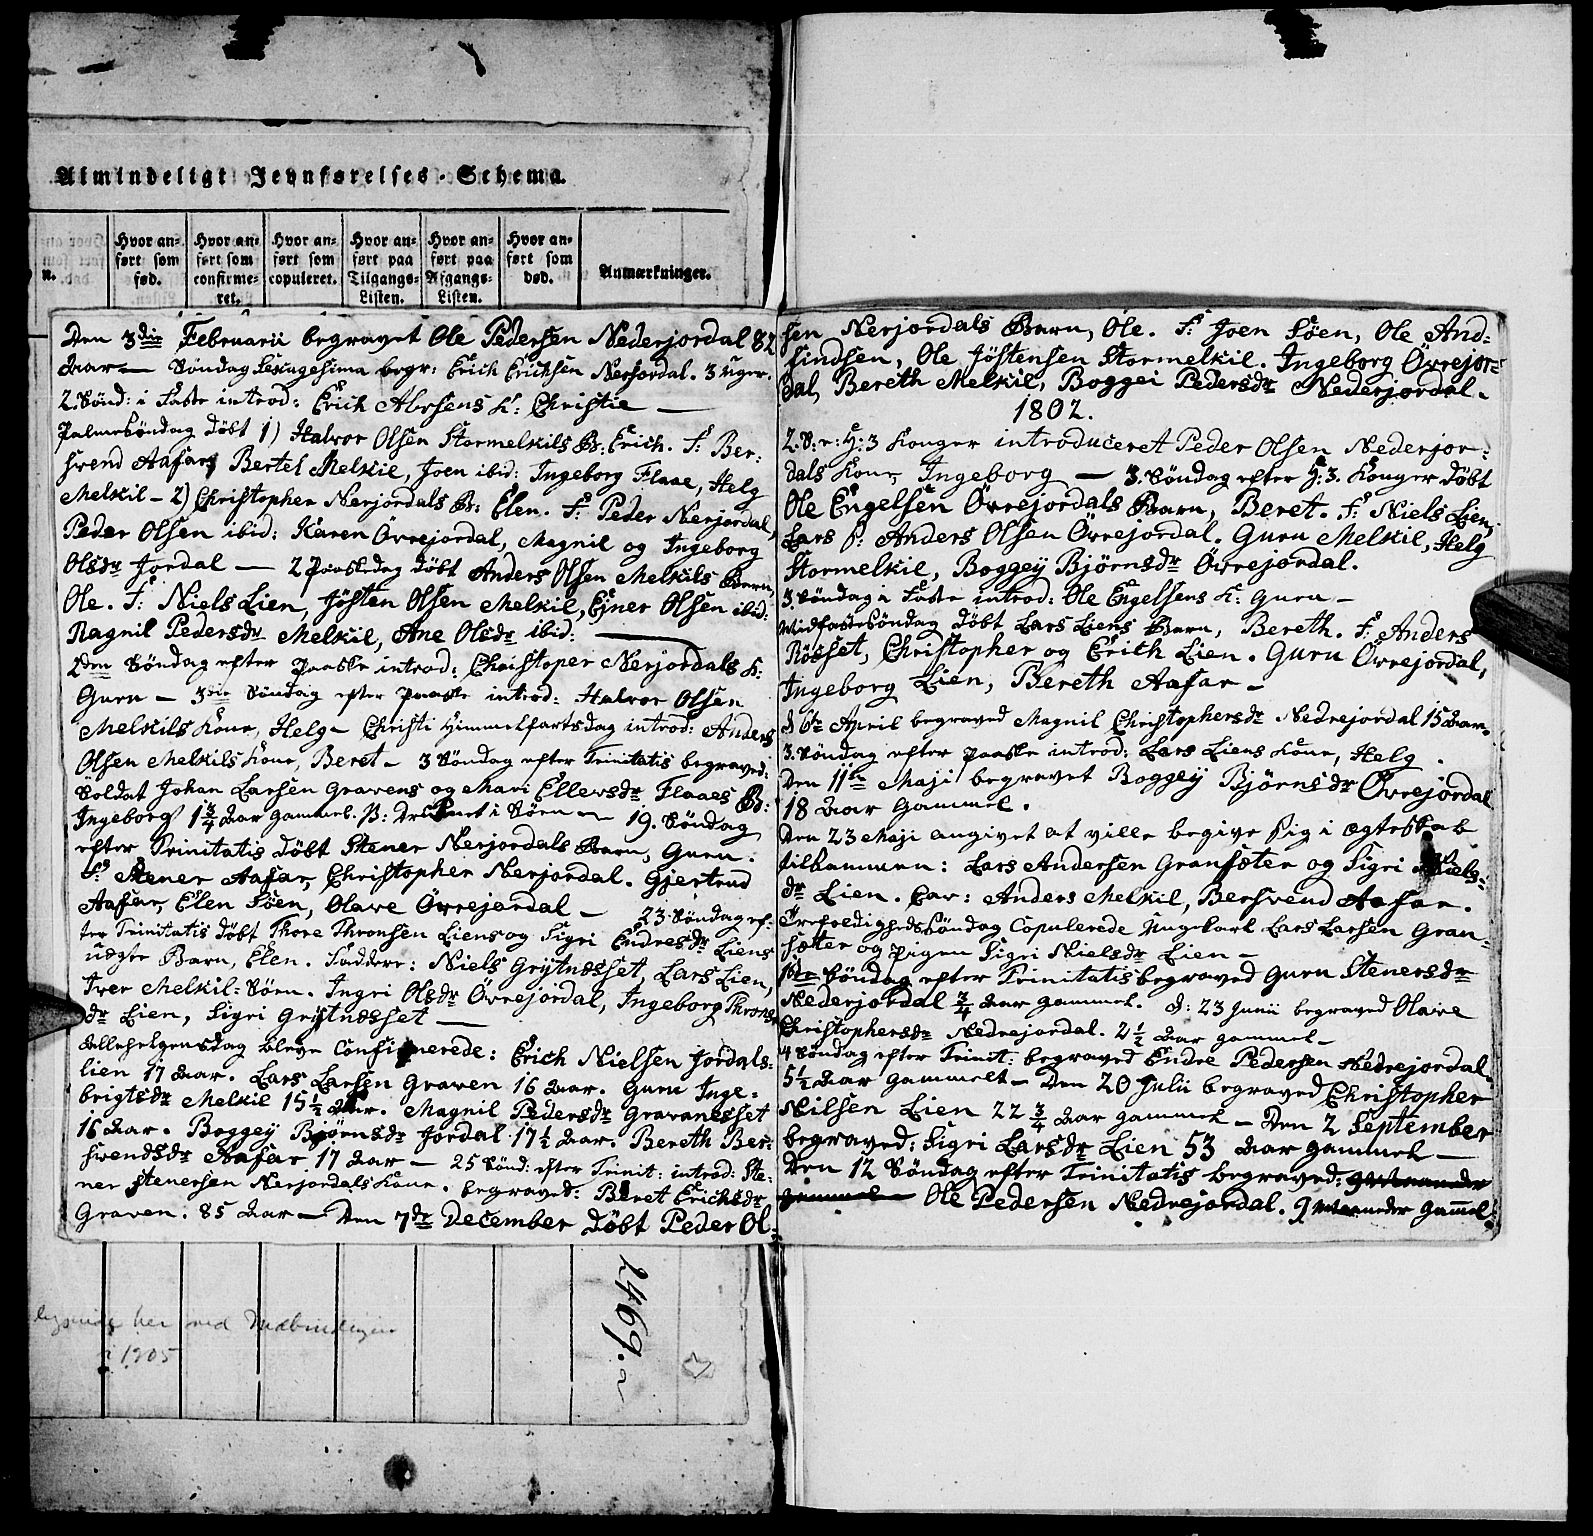 Almindeligt Jevnførelses-Schema.
n.
Hvor an-
ført som
fød.
Hvor an-
ført som
confirme-
ret.
Hvor an-
ført som
copuleret.
Hvor an-
ført paa
Tilgangs-
Listen.
Hvor an-
ført paa
Afgangs-
Listen.
Hvor an-
ført som
død.
Anmærkninger.
Den 3die Februarii begravet Ole Pedersen Nederjordal 82
Aar — Søndag Sexagesima begr: Erich Erichsen Nerjordal. 3 uger.
2. Sønd: i Faste introd: Erich Abrsens K: Christie —
PalmeSøndag døbt 1) Halvor Olsen Stormelkils B: Erich. F: Ber:
svend Aafar, Bertel Melkil, Joen ibid: Ingeborg Flaae, Helg
Melkil — 2) Christopher Nerjordals B: Elen. F: Peder Nerjordal,
Peder Olsen ibid: Karen Övrejordal, Magnil og Ingeborg
Olsdr Jordal — 2 Paaskedag døbt Anders Olsen Melkils Barn,
Ole. F: Niels Lien, Jösten Olsen Melkil, Ejner Olsen ibid:
Ragnil Pedersdr Melkil, Ane Olsdr ibid: —
2den Søndag efter Paaske introd: Christoper Nerjordals K:
Guru — 3die Søndag efter Paaske introd: Halvor Olsen
Melkils Kone, Helg — Christi Himmelfartsdag introd: Anders
Olsen Melkils Kone, Beret — 3 Søndag efter Trinitatis begraved:
Soldat Johan Larsen Gravens og Mari Ellevsdr Flaaes B:
Ingeborg 1 3/4 Aar gammel. P: Druknet i Søen — 19. Søndag
efter Trinitatis døbt Stener Nerjordals Barn, Guru.
F: Stener Aafar, Christopher Nerjordal. Gjertrud
Aafar, Elen Söen, Olave Övrejordal — 23 Søndag ef-
ter Trinitatis døbt Thore Thronsen Liens og Sigri Endresdr Liens
uægte Barn, Elen. Faddere: Niels Grytnesset, Lars Lien,
Iver Melkil: Sören. Ingri Olsdr Övrejördal, Ingeborg Throns
dr Lien, Sigri Grytnesset —
Allehelgensdag bleve Confirmerede: Erich Nielsen Jordals-
lien 17 Aar. Lars Larsen Graven 16 Aar. Guru Inge-
brigtsdr Melkil 15 1/2 Aar. Magnil Pedersdr Gravanesset
16 Aar. Boggey Bjørnsdr Jordal 17 1/2 Aar. Bereth Ber:
svendsdr Aafar 17 Aar — 25 Sønd: efter Trinit: introd: Ste:
ner Stenersen Nerjordals Kone. begraved: Beret Erichsdr
Graven. 85 Aar — Den 7de December døbt Peder Ol-
her ved Indbindingen
i 1905
2469.
sen Nerjordals Barn, Ole. F: Joen Söen, Ole And-
sindsen, Ole Jöstensen Stormelkil. Ingeborg Övrejor-
dal, Bereth Melkil, Boggei Pedersdr Nederjordal.
1802.
2. S: e: H: 3 Konger introduceret Peder Olsen Nederjor-
dals Kone, Ingeborg — 3. Søndag efter H: 3. Konger døbt
Ole Engelsen Övrejordals Barn, Beret. F: Niels Lien,
Lars f: Anders Olsen Övrejordal. Guru Melkil, Helg
Stormelkil, Boggey Bjørnsdr Övrejordal.
3. Søndag i Faste introd: Ole Engelsens K: Guru —
MidfasteSøndag døbt Lars Liens Barn, Bereth. F: Anders
Rösset, Christopher og Erich Lien. Guru Övrejordal,
Ingeborg Lien, Bereth Aafar —
d 6te April begraved Magnil Christophersdr Nedrejordal 15 Aar.
3. Søndag efter Paaske introd: Lars Liens Kone, Helg.
Den 11te Maji begravet Boggey Bjørnsdr Övrejordal
18 Aar gammel.
Den 23 Maji angivet at ville begive sig i ægteskab
tilsammen: Lars Andersen Gransæter og Sigri Niels-
dr Lien. Cav: Anders Melkil, Bersvend Aafar.
TrefoldighedsSöndag Copulerede Ungekarl Lars Larsen Gran-
sæter og Pigen Sigri Nielsdr Lien —
1ste Søndag efter Trinitatis begraved Guru Stenersdr
Nederjordal 3/4 Aar gammel. d: 23 Junii begraved Olave
Christophersdr Nedrejordal. 2 1/2 Aar gammel —
4 Søndag efter Trinit: begraved Endre Pedersen Nedrejordal
5 1/2 Aar gammelt — Den 20 Julii begraved Christopher
Nilsen Lien 22 3/4 Aar gammel — Den 2 September
begraved: Sigri Larsdr Lien 53 Aar gammel —
Den 12 Søndag efter Trinitatis begraved:
gammel Ole Pedersen Nedrejordal. 9 maaneder gammel.